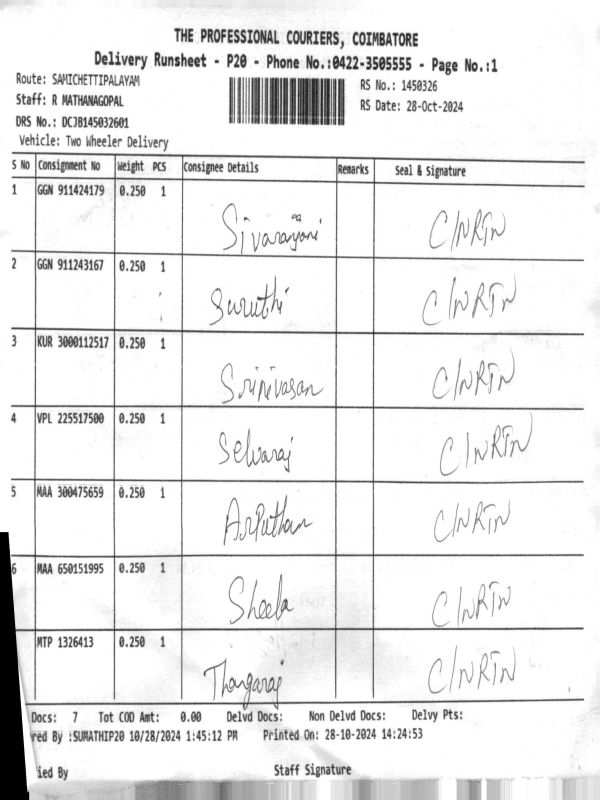 THE PROFESSIONAL COURIERS, COIMBATORE
Delivery Runsheet - P20 - Phone No.:0422-3505555 - Page No.:1
Route: SAMICHETTIPALAYAM
RS No.: 1450326
Staff: R MATHANAGOPAL
RS Date: 28-Oct-2024
DRS No.: DCJB145032601
Vehicle: Two Wheeler Delivery
S No Consignment No Weight PCS Consignee Details Remarks Seal & Signature
1 GGN 911424179 0.250 1
Sivaranjani C/NRTN
2 GGN 911243167 0.250 1
Suruthi C/NRTN
3 KUR 3000112517 0.250 1
Srinivasan C/NRTN
4 VPL 225517500 0.250 1
Selvaraj C/NRTN
5 MAA 300475659 0.250 1
Arputham C/NRTN
6 MAA 650151995 0.250 1
Sheela C/NRTN
MTP 1326413 0.250 1
Thangaraj C/NRTN
Docs: 7 Tot COD Amt: 0.00 Delvd Docs: Non Delvd Docs: Delvy Pts:
red By :SUMATHIP20 10/28/2024 1:45:12 PM Printed On: 28-10-2024 14:24:53
ied By Staff Signature